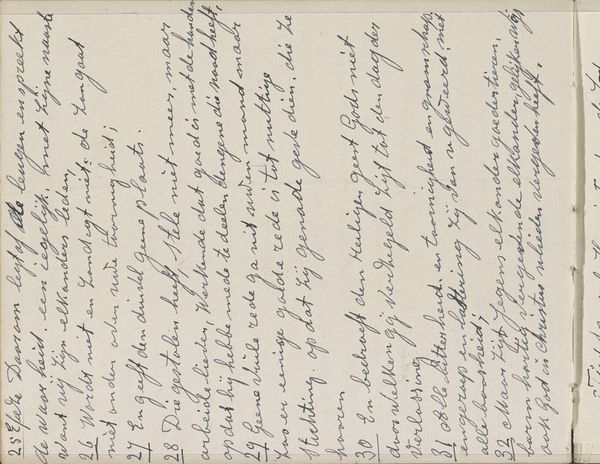 25 Efeze Daarom legt af de leugen en spreekt
de waarheid. een iegelijk, met Zijne naaste
Want wij Zijn elkanders leden,
26 Wordt niet en Zondigt niet. de Zon gaat
niet onder over uwe toornigheid;
27 En geeft den duivel geene plaats.
28 Die gestolen heeft, stele niet meer, maar
arbeide liever, Werkende dat goed is met de handen
opdat hij hebbe mede te deelen dengene die nood heeft,
29 Geene Vuile rede ga uit uwen mond maar
Zoo er eenige goede rede is tot nuttige
Stichting. op dat Zij genade geve dien. die Ze
hooren
30 En bedroeft den Heiligen geest Gods niet
door Welken gij verzegeld Zijt tot den dag der
Verlossing
31 Alle bitterheid. en toornigheid en gramschap
en geroep en lastering Zij van u geweerd, met
alle boosheid;
32 Maar Zijt Jegens elkander goedertieren,
barmhartig vergevende elkander, gelijkerwijs
ook God in Christus ulieden vergeven heeft,